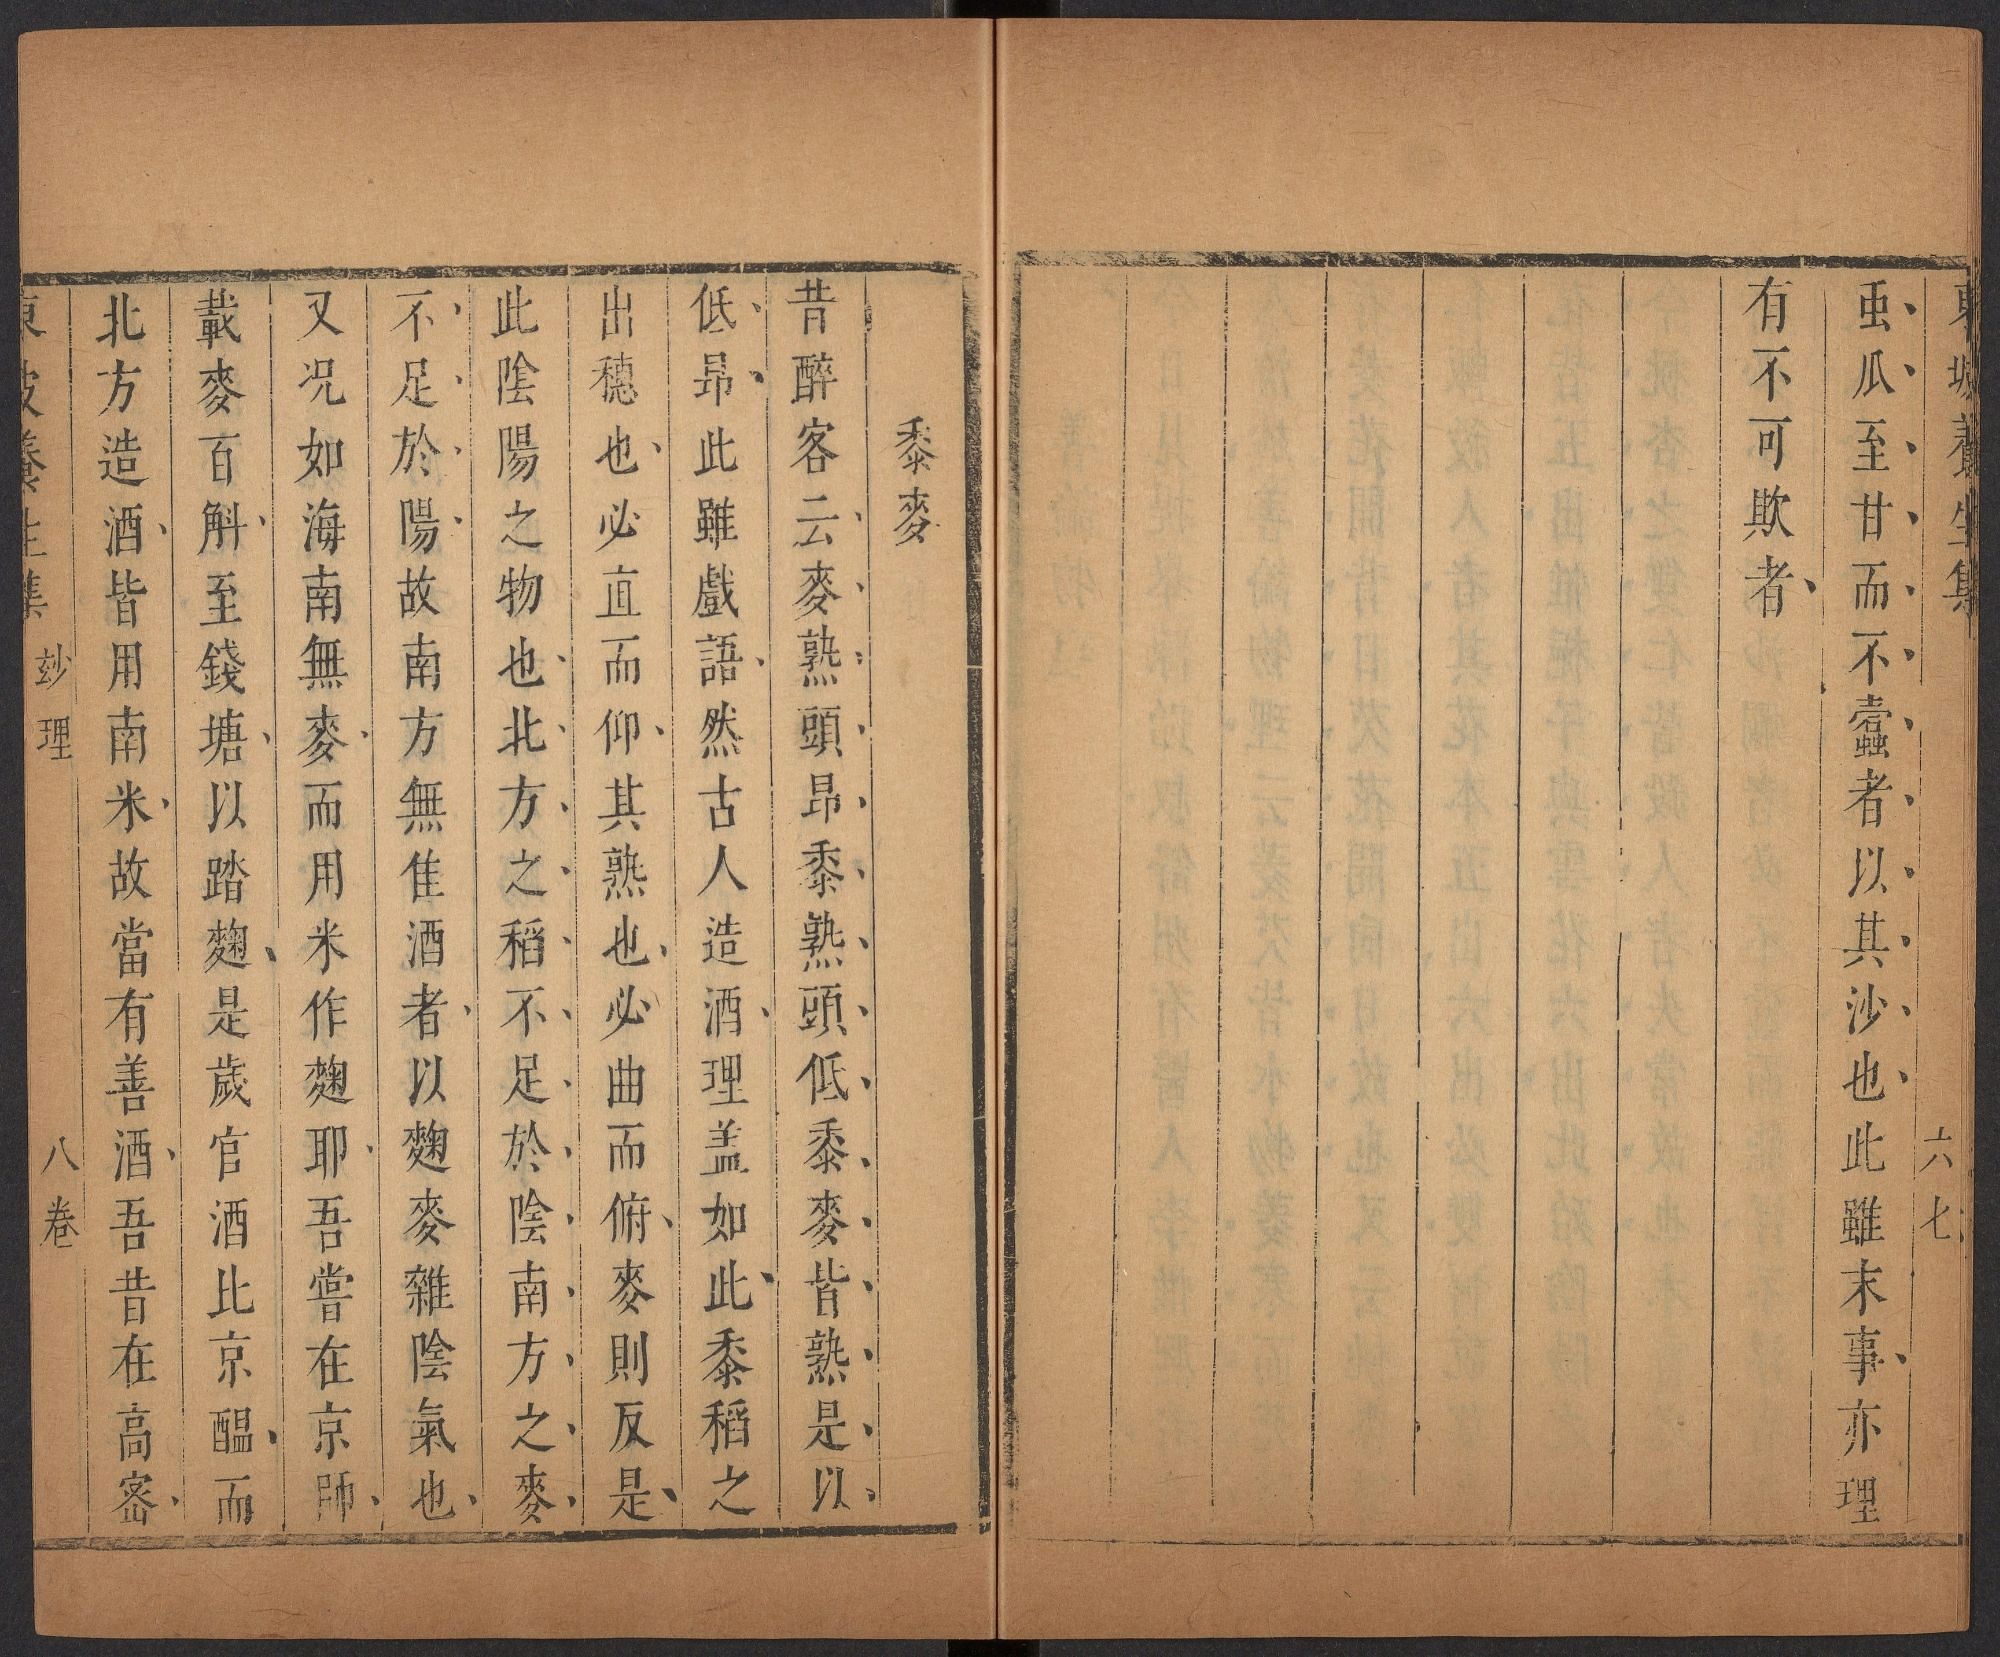 東坡養生集
六七
䖝瓜至甘而不蠹者以其沙也此雖末事亦理
有不可欺者
黍麥
昔醉客云麥熟頭昂黍熟頭低黍麥皆熟是以
低昂此雖戲語然古人造酒理盖如此黍稻之
出穗也必直而仰其熟也必曲而俯麥則反是
此陰陽之物也北方之稻不足於陰南方之麥
不足於陽故南方無佳酒者以麴麥雜陰氣也
又况如海南無麥而用米作麴耶吾嘗在京師
載麥百斛至錢塘以踏麴是歲官酒比京醖而
北方造酒皆用南米故當有善酒吾昔在高密
東坡養生集
玅理
八卷